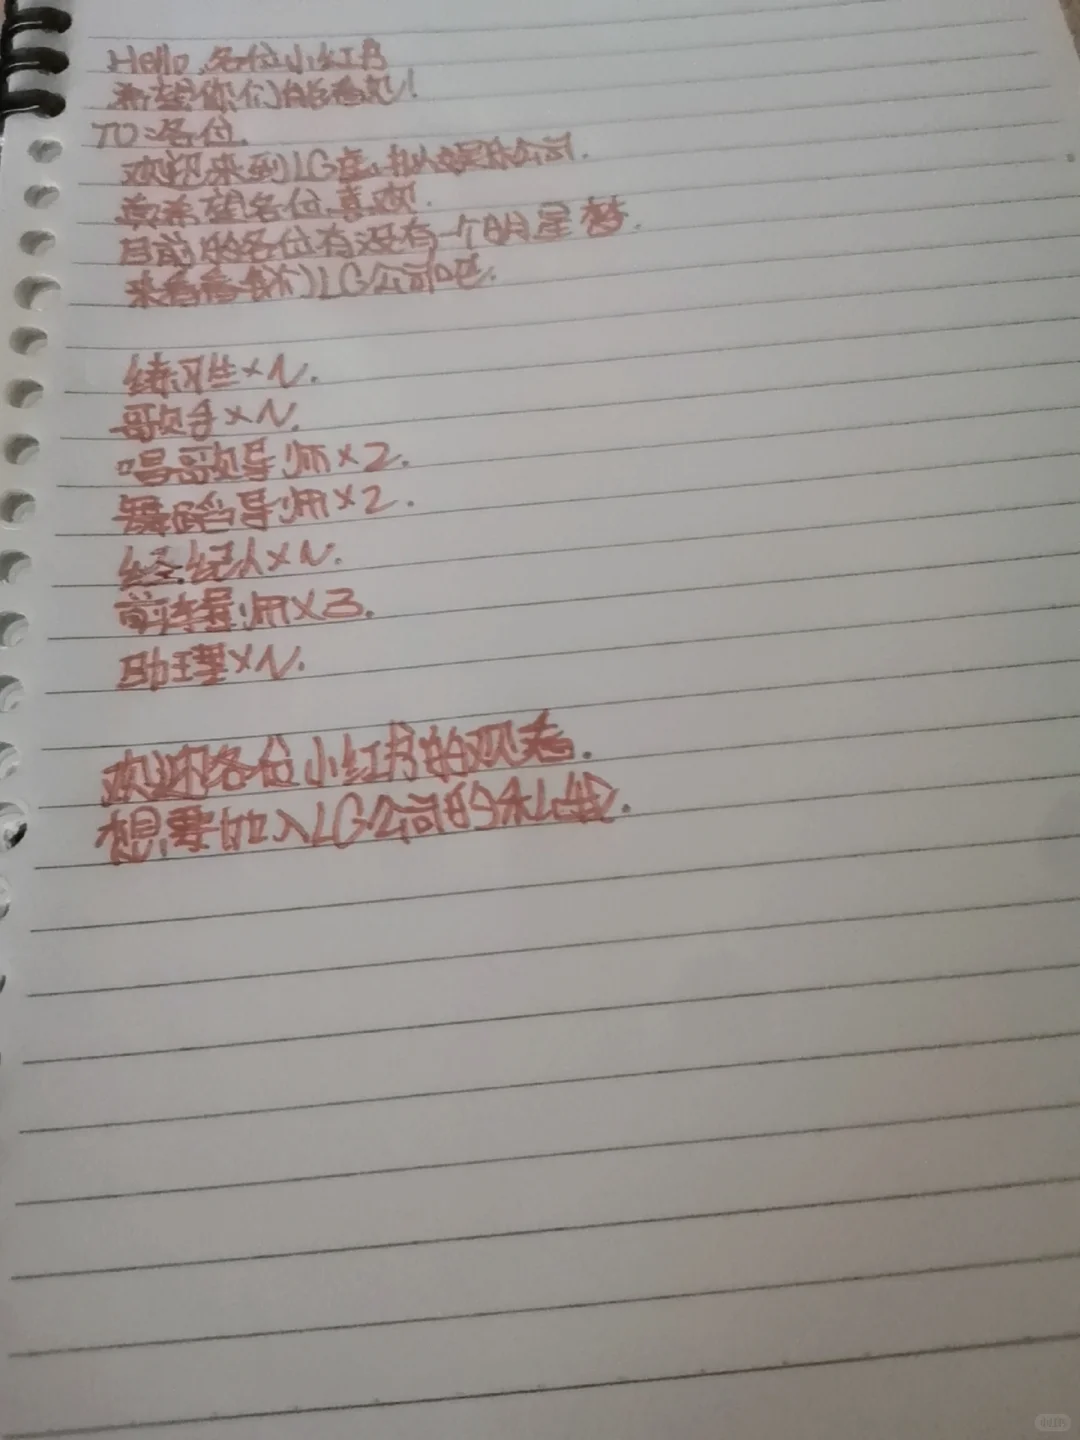 Hello,各位小红书
希望你们能看见!
TO:各位.
欢迎来到LG公司.
希望各位喜欢.
目前的各位有没有一个明星梦.
来看看我们LG公司吧.
练习生×N.
歌手×N.
唱歌导师×2.
舞蹈导师×2.
经纪人×N.
导师×3.
助理×N.
欢迎各位小红书的观看.
想要加入LG公司的私我.
小红书